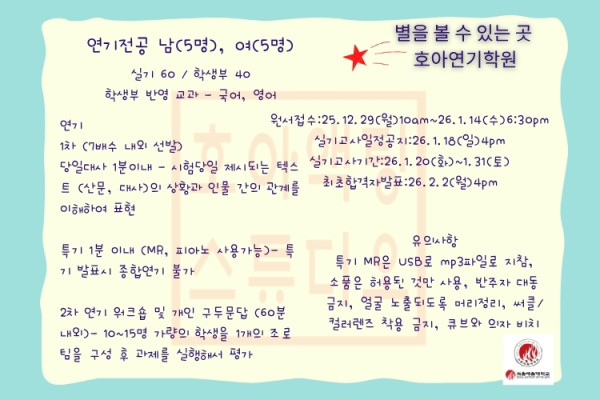 연기전공 남(5명), 여(5명)
실기 60 / 학생부 40
학생부 반영 교과 - 국어, 영어
별을 볼 수 있는 곳
호아연기학원
연기
1차 (7배수 내외 선발)
당일대사 1분이내 - 시험당일 제시되는 텍스
트 (산문, 대사)의 상황과 인물 간의 관계를
이해하여 표현
특기 1분 이내 (MR, 피아노 사용가능)- 특
기 발표시 종합연기 불가
2차 연기 워크숍 및 개인 구두문답 (60분
내외)- 10~15명 가량의 학생을 1개의 조로
팀을 구성 후 과제를 실행해서 평가
원서접수:25.12.29(월)10am~26.1.14(수)6:30pm
실기고사일정공지:26.1.18(일)4pm
실기고사기간:26.1.20(화)~1.31(토)
최초합격자발표:26.2.2(월)4pm
유의사항
특기 MR은 USB로 mp3파일로 지참,
소품은 허용된 것만 사용, 반주자 대동
금지, 얼굴 노출되도록 머리정리, 써클/
컬러렌즈 착용 금지, 큐브와 의자 비치
호아워킹
스튜디오
서울예술대학교